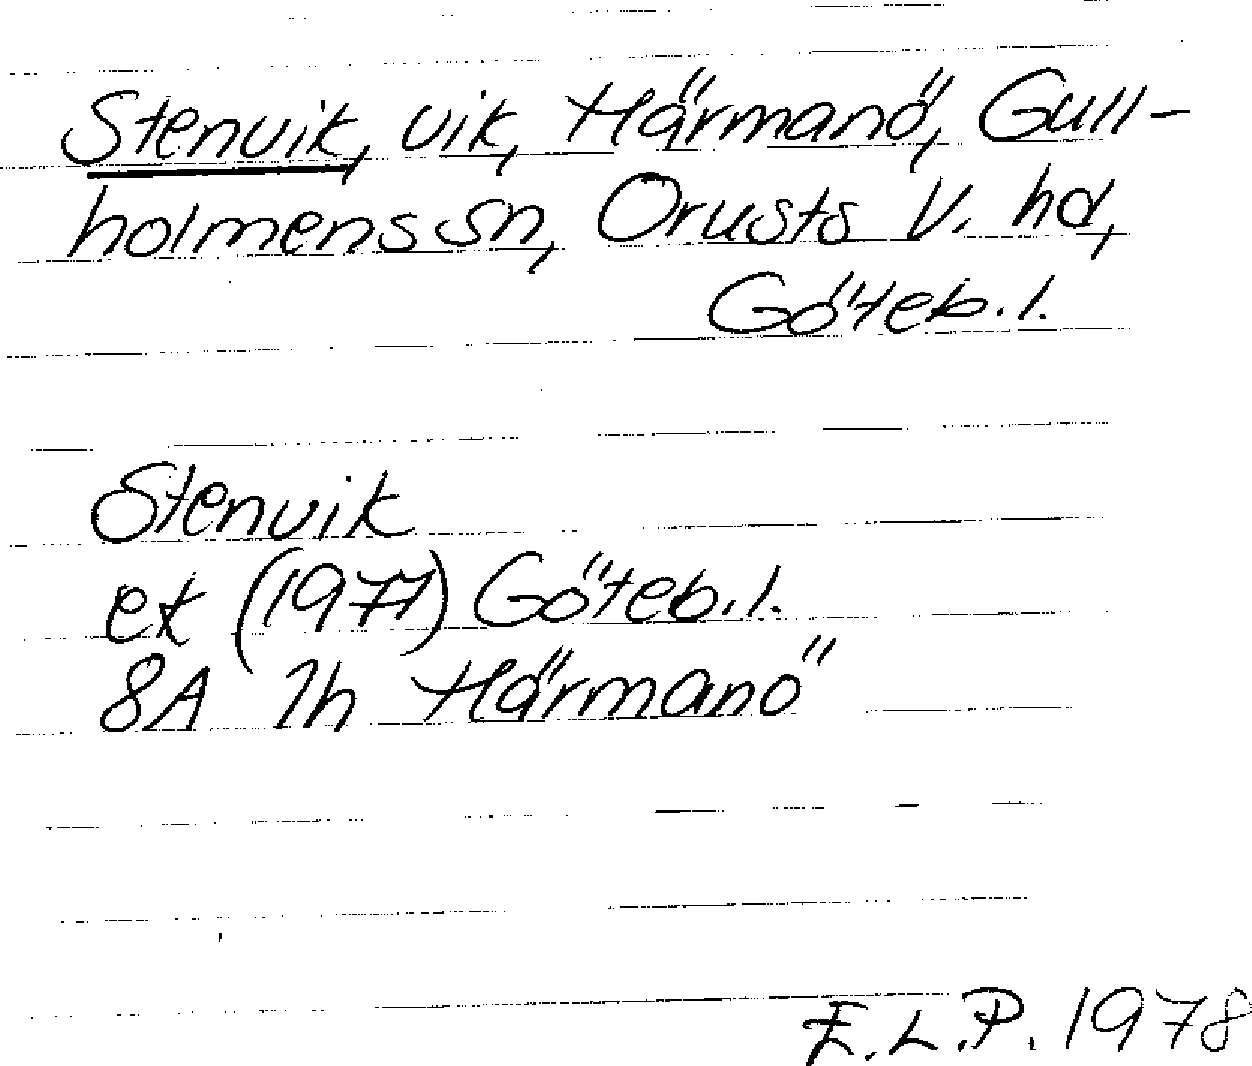 Stenvik, vik, Härmanö, Gull-
holmens sn, Orusts V. hd,
Göteb. l.
Stenvik
ek (1977) Göteb. l.
8A 7h Härmanö
E.L.P. 1978